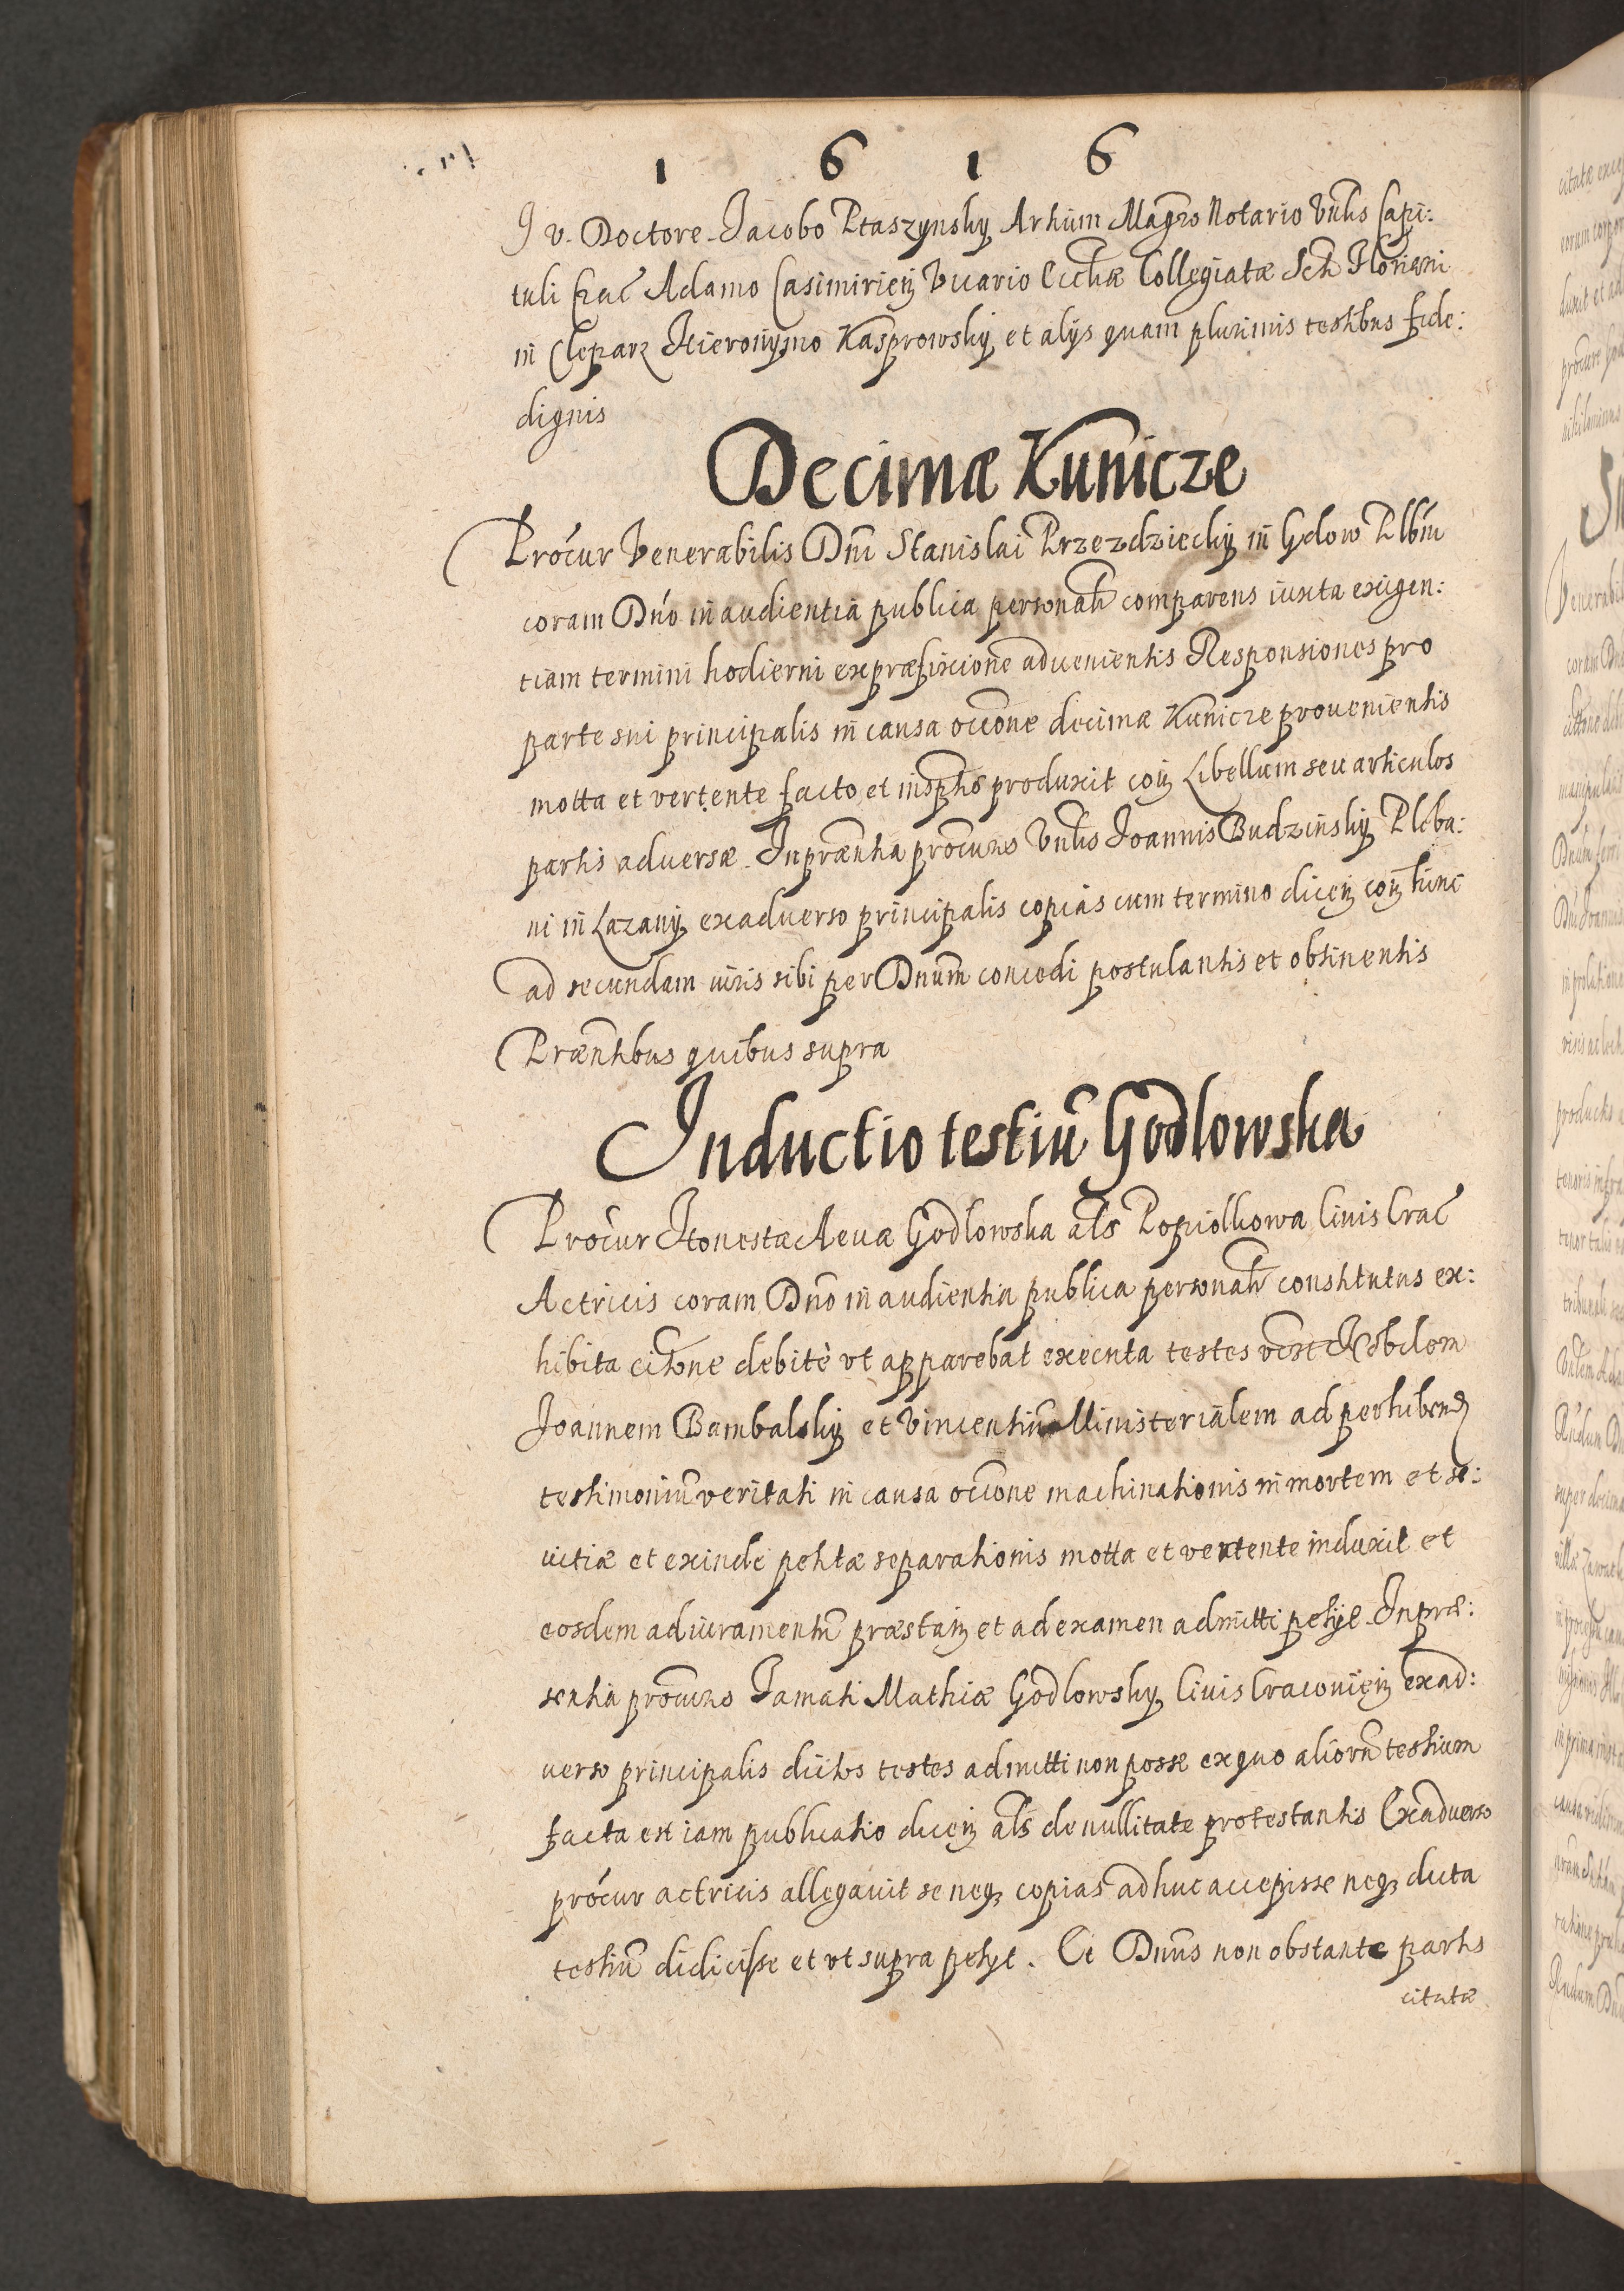 1 6 1 6
J v. Doctore Jacobo Ptaszynsky Artium Magro Notario Vnlis Capi:
tuli Crac Adamo Casimirien Vicario Eccliæ Collegiatæ Scti Floriani
in Clepar Hieronymo Kasprowsky et alijs quam plurimis testibus fide:
dignis
Decimæ Kunicze
Procur Venerabilis Dni Stanislai Przezdziecky in Gdow Plbni
coram Dno in audientia publica personalr comparens iuxta exigen:
tiam termini hodierni ex præfixione aduenientis Responsiones pro
parte sui principalis in causa occone decimæ Kunicze prouenientis
motta et vertente facto et in sptis produxit con Libellum seu articulos
partis aduersæ. In præntia procuris Vnlis Joannis Budzinsky Pleba:
ni in Lazany exaduerso principalis copias cum termino dicen con tunc
ad secundam iuris sibi per Dnum concedi postulantis et obtinentis
Præntibus quibus supra
Inductio testiu Godlowska
Procur Honestæ Aeuæ Godlowska als Popiolkowa Ciuis Crac
Actricis coram Dno in audientia publica personalr constitutus ex:
hibita citone debitè vt apparebat executa testes
Joannem Bambalsky et Vincentiu Ministerialem ad perhibend
testimoniu veritati in causa occone machinationis in mortem et sę:
uitiæ et exinde petitæ separationis motta et vertente induxit et
eosdem ad iuramentu præstan et ad examen admitti petijt. In præ:
sentia procuris Famati Mathiæ Godlowsky Ciuis Cracouien exad:
uerso principalis dictos testes admitti non posse ex quo alioru testium
facta est iam publicatio dicen als de nullitate protestantis Exaduerso
procur actricis allegauit se neq copias adhuc accepisse neq dicta
testiu didicisse et vt supra petijt. Et Dnus non obstante partis
citatæ